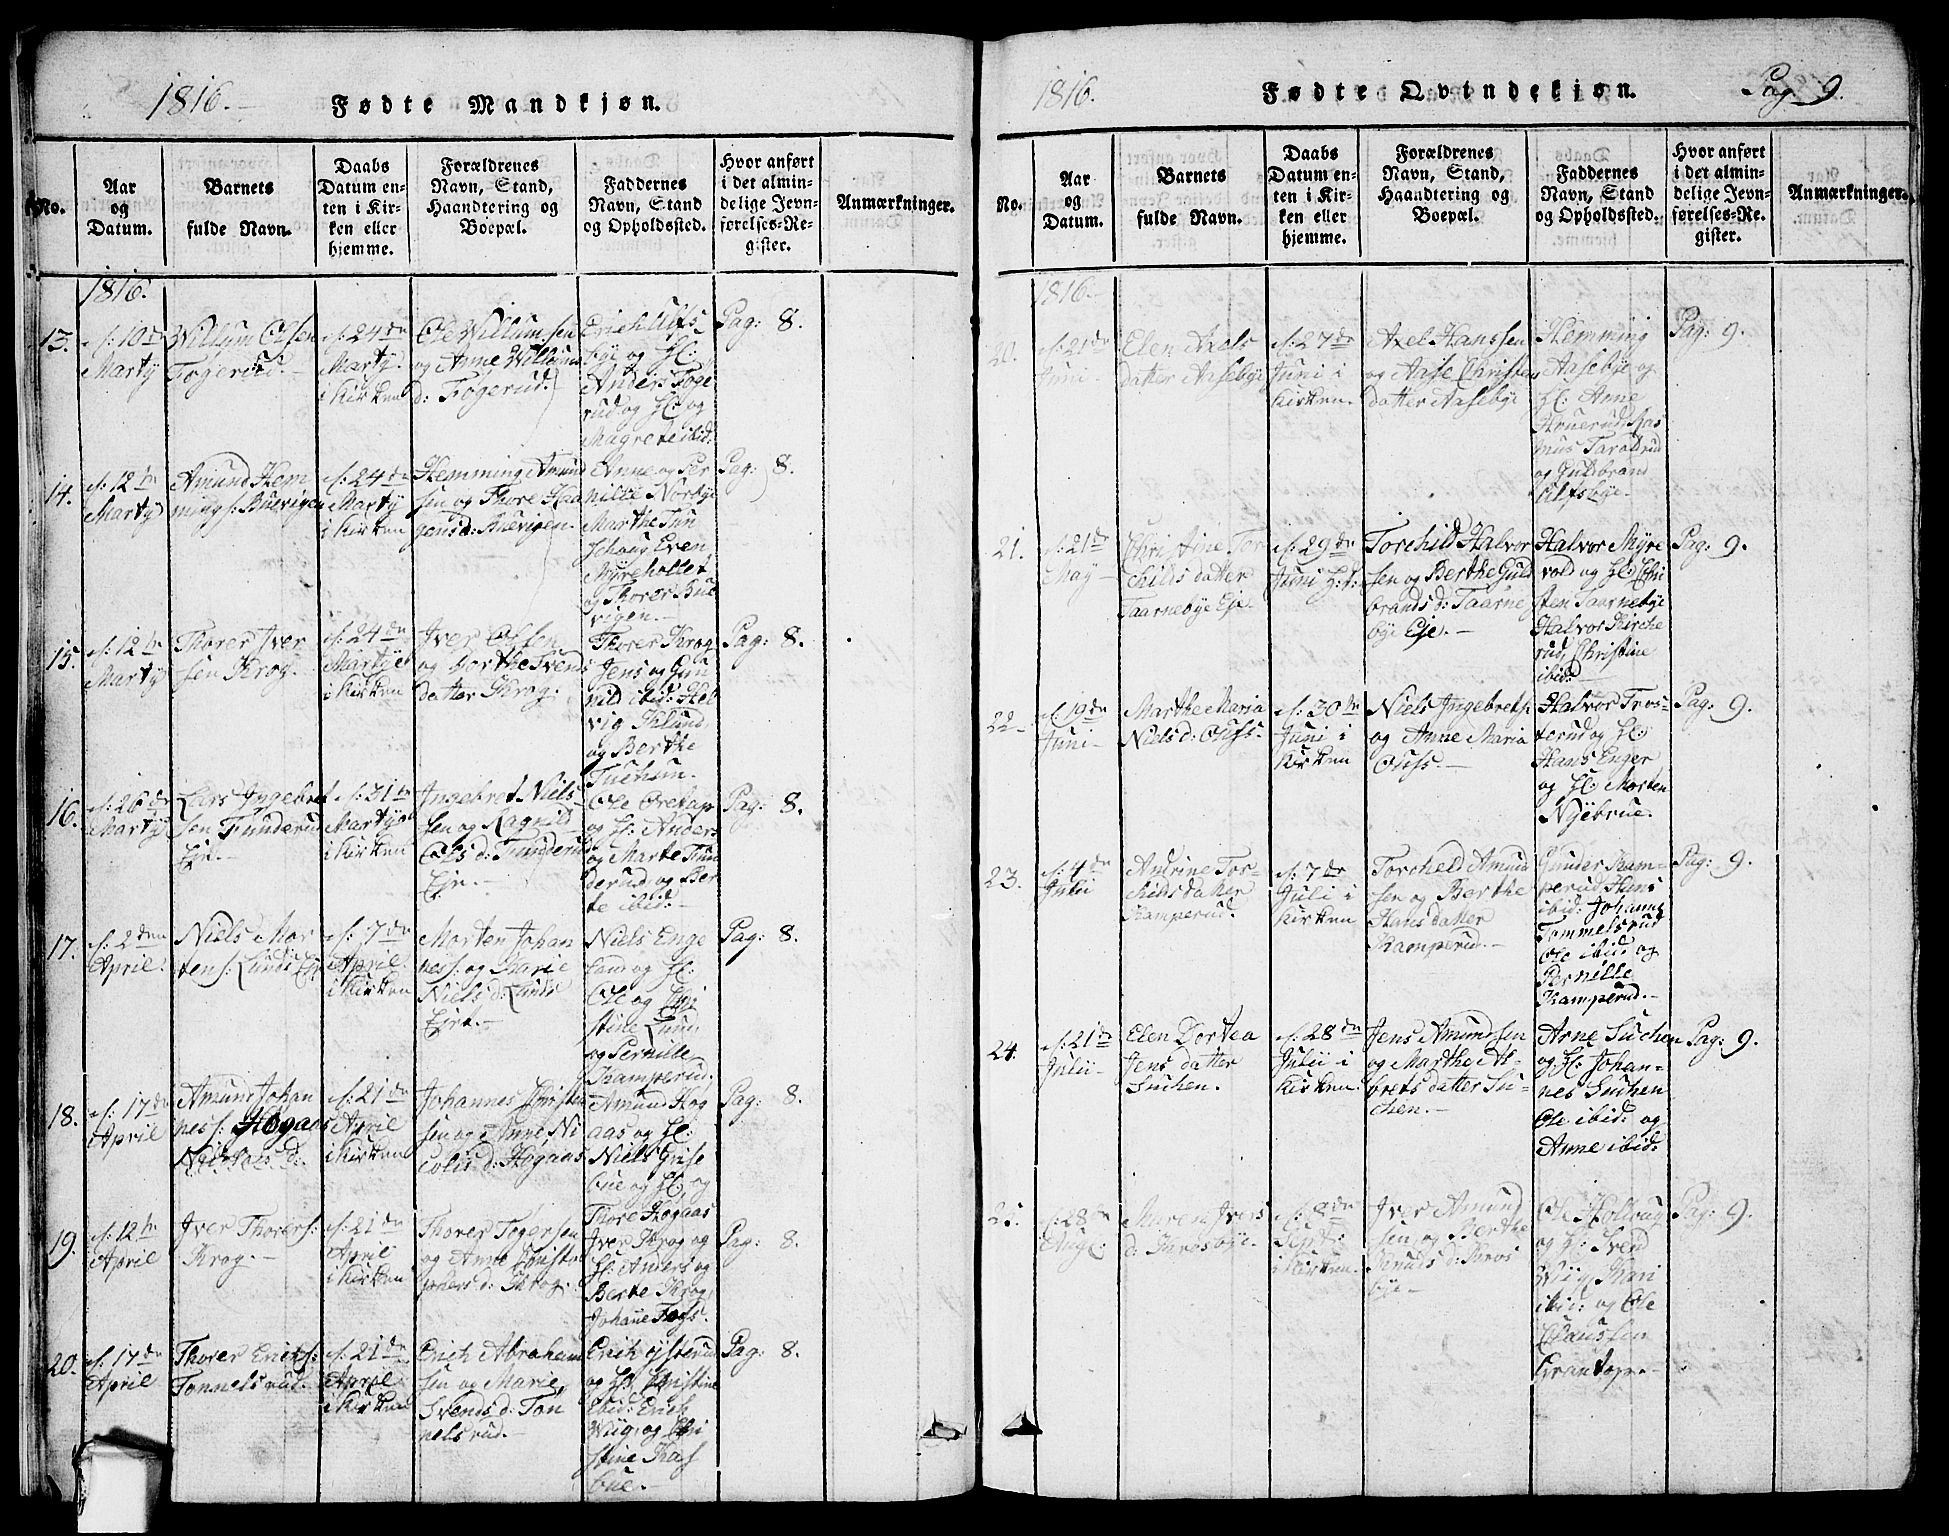 1816.
Fødte Mandkjøn.
No.
Aar
og
Datum.
Barnets
fulde Navn.
Daabs
Datum en-
ten i Kir-
ken eller
hjemme.
Forældrenes
Navn, Stand,
Haandtering og
Boepæl.
Faddernes
Navn, Stand
og Opholdssted.
Hvor anført
i det almin-
delige Jevn-
førelses-Re-
gister.
Anmærkninger.
1816.
13.
d: 10de
Martÿ
Willum Olsen
Fogerud.
d: 24de
Martÿ
i Kirken
Ole Willumsen
og Anne Willums
d: Fogerud.
Erich Ulfs-
bye og H:
Anders Foge
rud og H: og
Magrete ibid:
Pag: 8.
14.
d: 12te
Martÿ
Amund Hem
mings: Buevigen
d: 24de
Martÿ
i Kirken
Hemming Amund
sen og Thore Haa
gensd: Buevigen.
Anne og Per
nille Norbye
Marthe Tun
Schoug Even
Myreholtet
og Thorer Bue
vigen.
Pag: 8.
15.
d: 12te
Martÿ
Thorer Iver
sen Krog.
d: 24de
Martÿ
i Kirken
Iver Olsen
og Borthe Svends
datter Krog.
Thorer Krog
Jens og Gun
nild ibid: Hel
vig Eklund
og Berthe
Tuehun.
Pag: 8.
16.
d: 26de
Martÿ
Lars Ingebret
sen Funderud
Eje.
d: 31te
Martÿ
i Kirken
Ingebret Niels-
sen og Ragnild
Olsd: Funderud
Eje.
Ole Gretap
og H: Anders
og Marte Fun
derud og Ber
te ibid:
Pag: 8.
17.
d: 2den
April.
Niels Mor
tens: Lunds Eje
d: 7de
April
i Kirken
Morten Johan
ness: og Karie
Nielsd: Lunds
Eje.
Niels Enge
land og H:
Ole og Chri
stine Lund
og Pernille
Kamperud.
Pag: 8.
18.
d: 17de
April
Amund Johan
ness: Høgaas
d: 21de
April
i Kirken
Johannes Christen
sen og Anne Ni
colisd: Høgaas
Amund Høg
aas og H:
Niels Grise
bue og H: og
Thore Høgaas
Pag: 8.
19.
d: 12te
April
Iver Thorers:
Krog.
d: 21de
April
i Kirken
Thorer Togersen
og Anne Christo
phersd: Krog.
Iver Krog og
H: Anders og
Berte Krog
Johane Foss.
Pag: 8.
20.
d: 17de
April
Thorer Erichs:
Tonnelsrud.
d: 21de
April
i Kirken
Erich Abraham
sen og Marie
Svendsd: Ton
nelsrud.
Erich Øjsterud
og H: Christine
ibid: Erich
Wiig og Chri
stine Kas
bue.
Pag: 8.
1816.
Fødte Qvindekjøn.
Pag 9.
No.
Aar
og
Datum.
Barnets
fulde Navn.
Daabs
Datum en-
ten i Kir-
ken eller
hjemme.
Forældrenes
Navn, Stand,
Haandtering og
Boepæl.
Faddernes
Navn, Stand
og Opholdssted.
Hvor anført
i det almin-
delige Jevn-
førelses-Re-
gister.
Anmærkninger.
1816.
20.
d: 21de
Juni
Elen Axels
datter Aasebye
d: 27de
Juni i
Kirken.
Axel Hanssen
og Aase Christens
datter Aasebye
Hemming
Aasebye og
H: Anne
Houerud Ras
mus Taraldrud
og Gulbrand
Ulfsbye.
Pag: 9.
21.
d: 21de
May
Christine Tor
childs datter
Taarnebye Eje.
d: 29de
Juni H: d:
Torchild Halvor
sen og Berthe Guld
brandsd: Taarne
bye Eje.
Halvor Myre
vold og H: Chri
sten Taarnebye
Halvor Kirche
rud, Christine
ibid:
Pag: 9.
22.
d: 19de
Juni
Marthe Maria
Nielsd: Ouss.
d: 30te
Juni i
Kirken
Niels Ingebreths
og Anne Maria
Ouss.
Halvor Tros-
terud og H:
Hans Enger
og H: Morten
Nyebrue.
Pag: 9.
23.
d: 4de
Julii
Andrine Tor-
childs datter
Kamperud.
d: 7de
Juli i
Kirken
Torcheld Amund
sen og Berthe
Hans datter
Kamperud.
Gunder Kam-
perud, Hans
ibid: Johanne
Tommelsrud
Ole ibid og
Pernille
Kamperud.
Pag: 9.
24.
d: 21de
Julii
Elen Dortea
Jens datter
Suchen.
d: 28de
Julii i
Kirken.
Jens Amundsen
og Marthe Em-
brets datter Su-
chen.
Arne Suchen
og H: Johan-
nes Suchen
Ole ibid: og
Anne ibid:
Pag: 9.
25.
d: 28de
Aug:
Maren Ivers
d: Krosbye.
d: 8de
Sept:
i Kirken.
Iver Amund
sen, og Berthe
Knudsd: Kros
bye
Ole Kollerug
og H: Svend
Wiig, Kari
ibid: og Ole
Claussen
Grantopn.
Pag: 9.